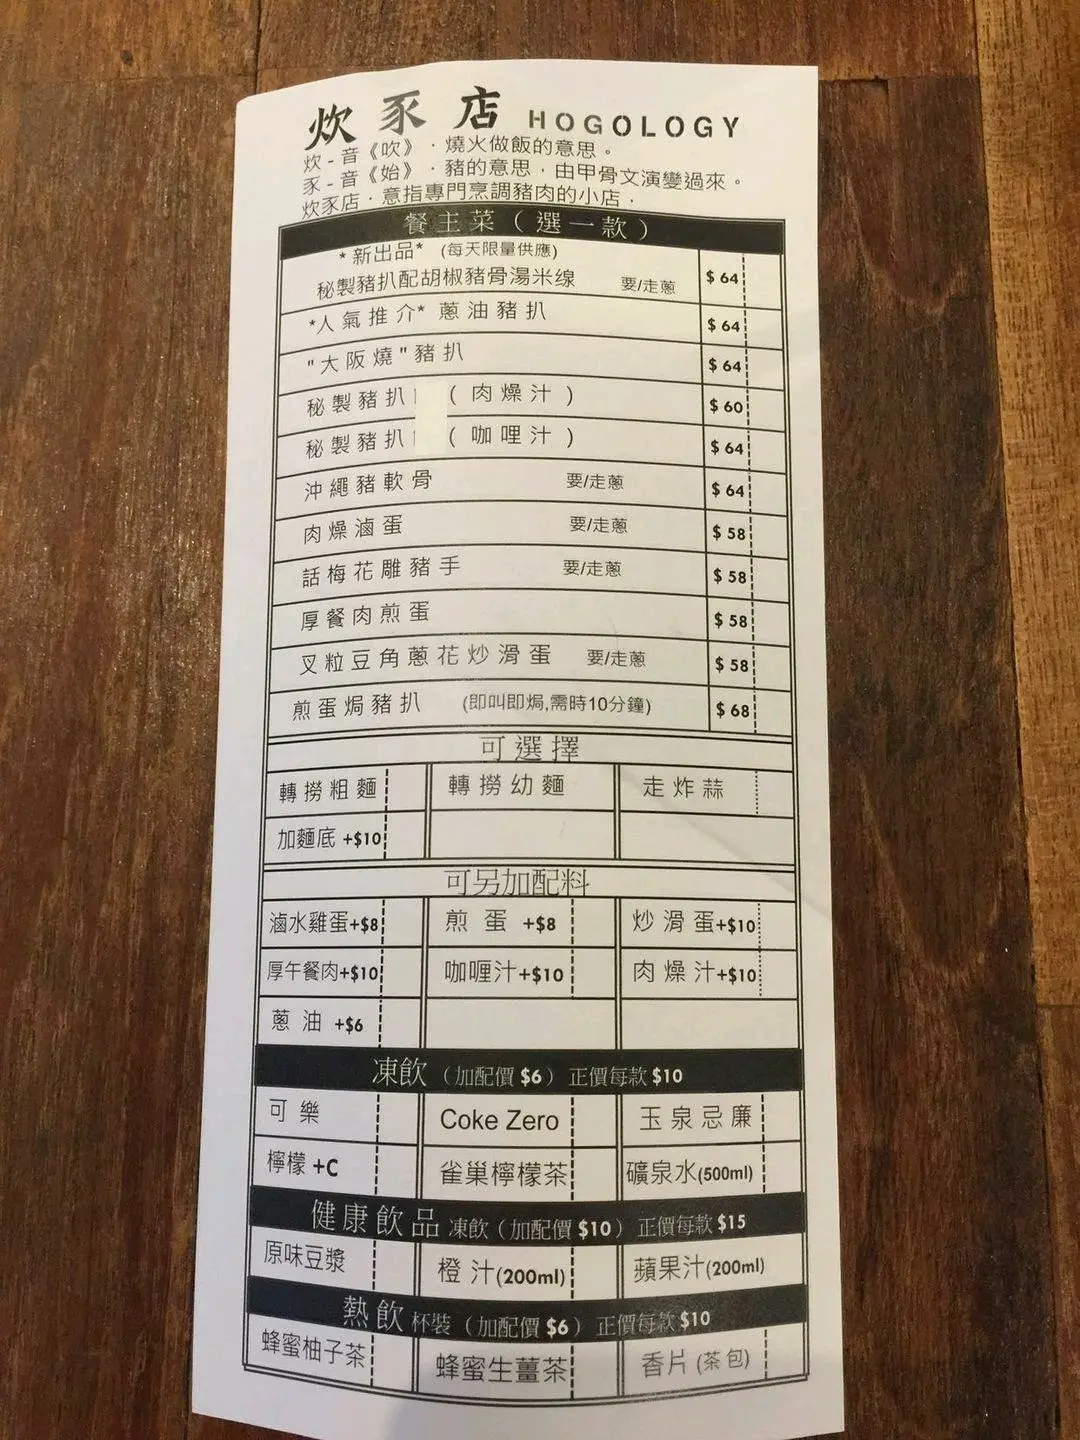 炊豕店 HOGOLOGY
炊-音《吹》．燒火做飯的意思。
豕-音《始》．豬的意思，由甲骨文演變過來。
炊豕店．意指專門烹調豬肉的小店，
餐主菜（選一款）
*新出品* (每天限量供應)
秘製豬扒配胡椒豬骨湯米线 要/走蔥 $ 64
*人氣推介* 蔥油豬扒 $ 64
"大阪燒"豬扒 $ 64
秘製豬扒 (肉燥汁) $ 60
秘製豬扒 (咖哩汁) $ 64
沖繩豬軟骨 要/走蔥 $ 64
肉燥滷蛋 要/走蔥 $ 58
話梅花雕豬手 要/走蔥 $ 58
厚餐肉煎蛋 $ 58
叉粒豆角蔥花炒滑蛋 要/走蔥 $ 58
煎蛋焗豬扒 (即叫即焗,需時10分鐘) $ 68
可選擇
轉撈粗麵 轉撈幼麵 走炸蒜
加麵底 +$10
可另加配料
滷水雞蛋+$8 煎蛋 +$8 炒滑蛋+$10
厚午餐肉+$10 咖喱汁+$10 肉燥汁+$10
蔥油 +$6
凍飲（加配價 $6） 正價每款 $10
可樂 Coke Zero 玉泉忌廉
檸檬 +C 雀巢檸檬茶 礦泉水(500ml)
健康飲品 凍飲（加配價 $10） 正價每款 $15
原味豆漿 橙汁(200ml) 蘋果汁(200ml)
熱飲 杯裝（加配價 $6） 正價每款 $10
蜂蜜柚子茶 蜂蜜生薑茶 香片 (茶包)